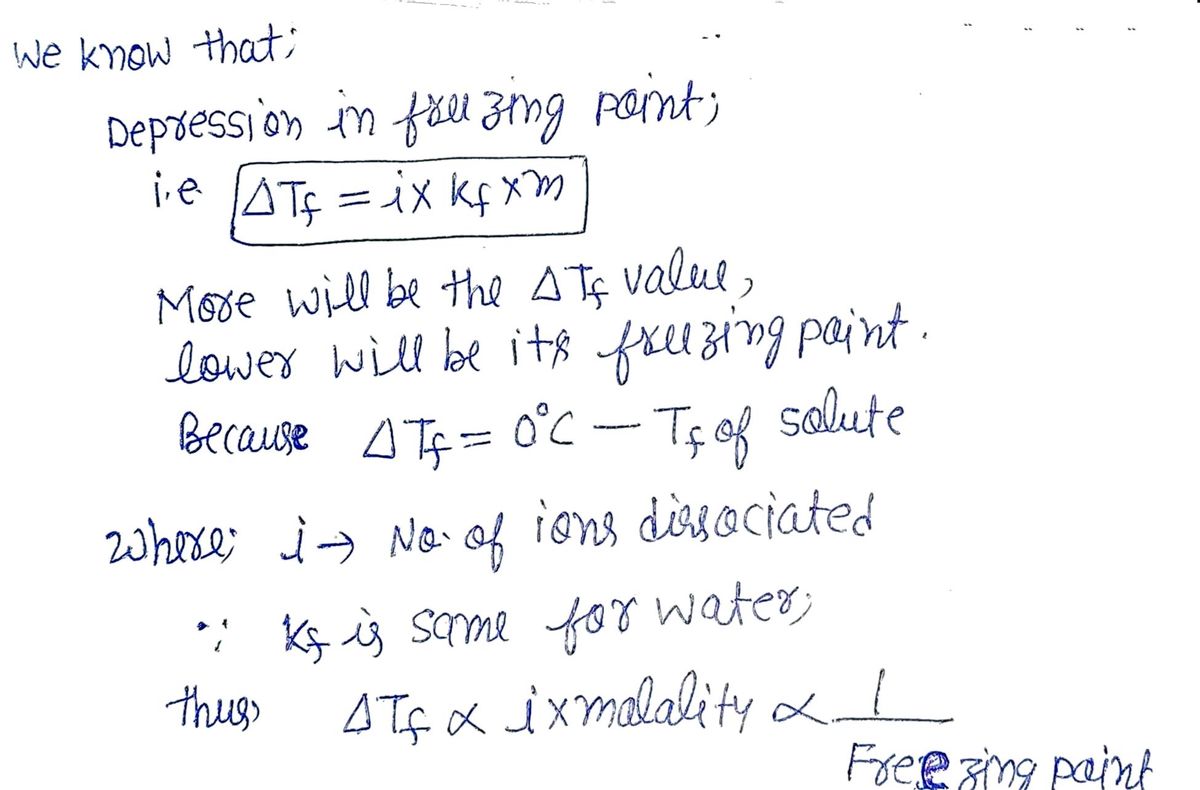 We know that;
Depression in freezing point;
i.e ΔTf = i x kf x m
More will be the ΔTf value,
lower will be its freezing point.
Because ΔTf = 0°C – Tf of solute
where; i → No. of ions dissociated
∵ kf is same for water;
thus, ΔTf ∝ i x molality ∝ 1
Freezing point